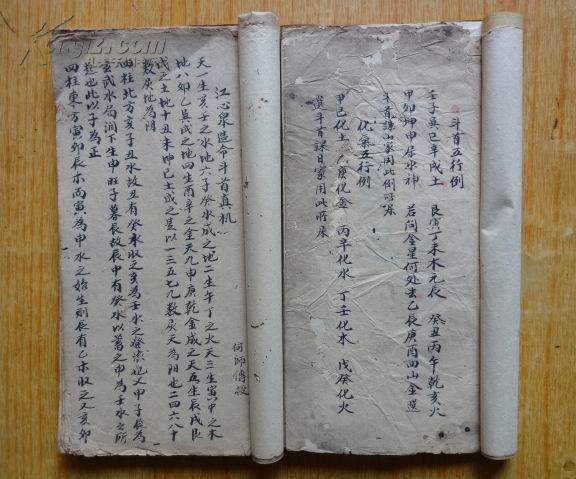 斗首五行例
壬子巽巳辛戌土 艮寅丁未木元辰 癸丑丙午乾亥火
甲卯坤申属水神 若问金星何处去 乙辰庚酉四山金
斗首諌山家用此例 所未
化氣五行例
甲己化土 乙庚化金 丙辛化水 丁壬化木 戊癸化火
選斗首諌日家用此 所未
江心泉造命斗首真机
何師傳授
天一生亥壬之水地六子癸水成之地二生午丁之火天三生寅甲之木
地八卯乙巽成之地四生酉辛之金天九申庚乾金成之天五生辰戌艮
戊之土地十丑未坤己土成之是以一三五七九数屬天為陽也二四六八十
数屬地為陰
四柱北方亥子丑水故丑有癸水取之亥為壬水之
玄武水局润下生申旺子暮辰故辰中有癸水以蓄之申為壬水之所
是也此以子為正
四柱東方寅卯辰木丙寅為甲水之始生則辰有乙木取之又亥卯